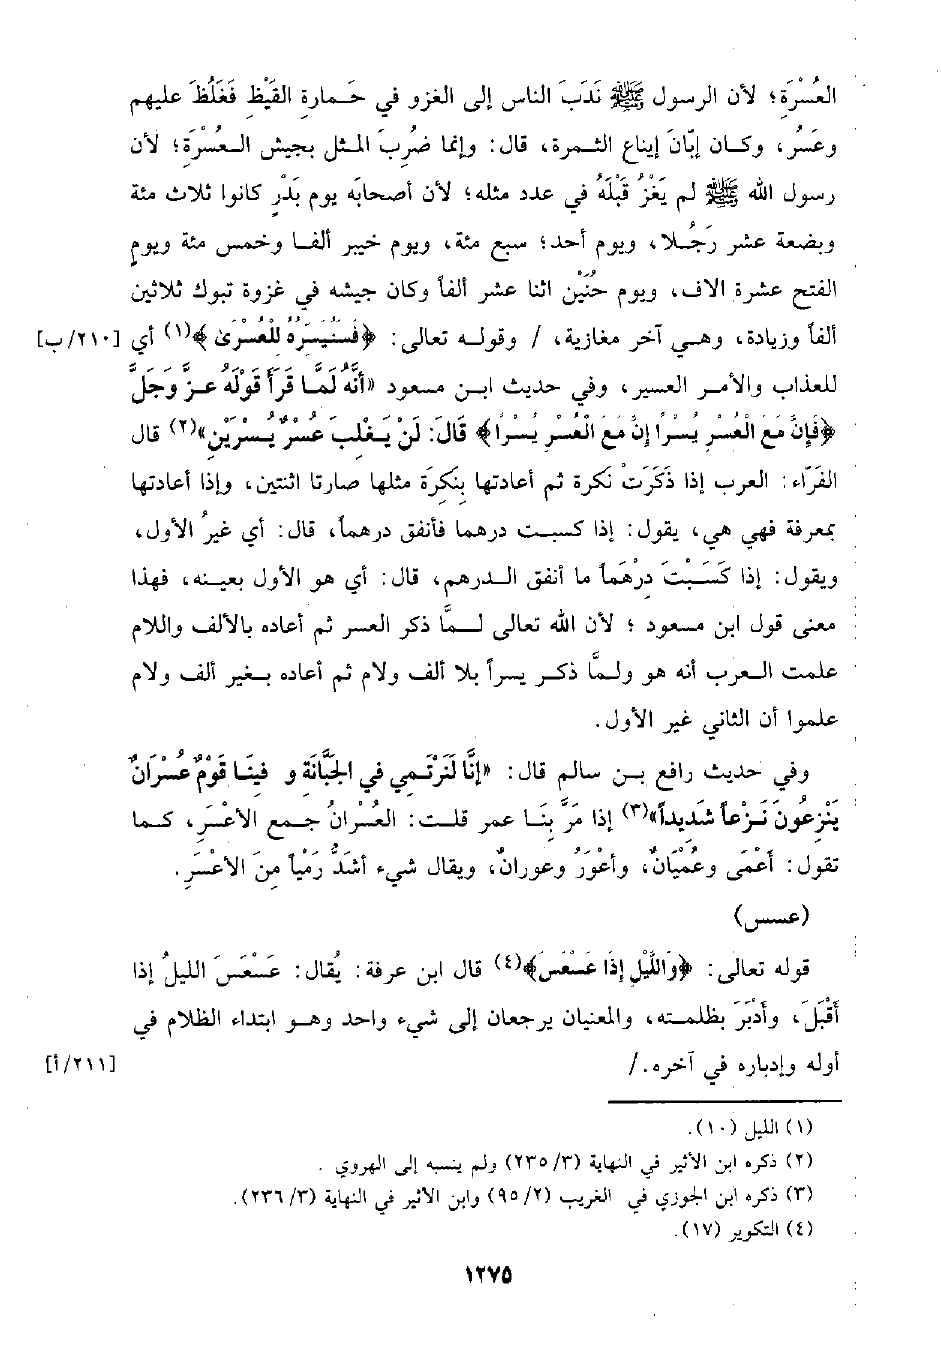 العُسْرَةِ؛ لأن الرسول ﷺ نَدَبَ الناس إلى الغزو في حَمارةِ القَيْظِ فَغَلُظَ عليهم
وعَسُر، وكان إبّانَ إيناع الثمرة، قال: وإنما ضُرِبَ المثل بجيش العسْرَةِ؛ لأن
رسول الله ﷺ لم يَغْزُ قَبْلَهُ في عدد مثله؛ لأن أصحابَه يوم بَدْرٍ كانوا ثلاث مئة
وبضعة عشر رَجُلا، ويوم أحد؛ سبع مئة، ويوم خيبر ألفا وخمس مئة ويوم
الفتح عشرة الاف، ويوم حُنَيْن اثنا عشر ألفاً وكان جيشه في غزوة تبوك ثلاثين
ألفاً وزيادة، وهي آخر مغازية، / وقوله تعالى: ﴿فَسَنُيَسِّرُهُ لِلْعُسْرَىٰ﴾(١) أي [٢١٠/ب]
للعذاب والأمر العسير، وفي حديث ابن مسعود «أَنَّهُ لَمَّا قَرَأَ قَوْلَهُ عزَّ وَجَلَّ
﴿فَإِنَّ مَعَ الْعُسْرِ يُسْرًا إِنَّ مَعَ الْعُسْرِ يُسْرًا﴾ قَالَ: لَنْ يَغْلِبَ عُسْرٌ يُسْرَيْنِ»(٢) قال
الفَرّاء: العرب إذا ذَكَرَتْ نكرة ثم أعادتها بنَكِرَة مثلها صارتا اثنتين، وإذا أعادتها
بمعرفة فهي هي، يقول: إذا كسبت درهما فأنفق درهماً، قال: أي غيرُ الأول،
ويقول: إذا كَسَبْتَ دِرْهَماً ما أنفق الدرهم، قال: أي هو الأول بعينه، فهذا
معنى قول ابن مسعود ؛ لأن الله تعالى لمَّا ذكر العسر ثم أعاده بالألف واللام
علمت العرب أنه هو ولمَّا ذكر يسراً بلا ألف ولام ثم أعاده بغير ألف ولام
علموا أن الثاني غير الأول.
وفي حديث رافع بن سالم قال: «إِنَّا لَنَرْتَمِي فِي الجَبَّانَةِ و فِينَا قَوْمٌ عُسْرَانٌ
يَنْزِعُونَ نَزْعاً شَدِيداً»(٣) إذا مَرَّ بِنَا عمر قلت: العُسْرانُ جمع الأعْسَرِ، كما
تقول: أَعْمَى وعُمْيَانٌ، وأعْوَرُ وعورانٌ، ويقال شيء أشدُّ رَمْياً مِنَ الأعْسَرِ.
(عسس)
قوله تعالى: ﴿وَاللَّيْلِ إِذَا عَسْعَسَ﴾(٤) قال ابن عرفة: يُقال: عَسْعَسَ الليلُ إذا
أَقْبَلَ، وأَدْبَرَ بظلمته، والمعنيان يرجعان إلى شيء واحد وهو ابتداء الظلام في
أوله وإدباره في آخره./ [٢١١/أ]
(١) الليل (١٠).
(٢) ذكره ابن الأثير في النهاية (٢٣٥/٣) ولم ينسبه إلى الهروي .
(٣) ذكره ابن الجوزي في الغريب (٩٥/٢) وابن الأثير في النهاية (٢٣٦/٣).
(٤) التكوير (١٧).
١٢٧٥